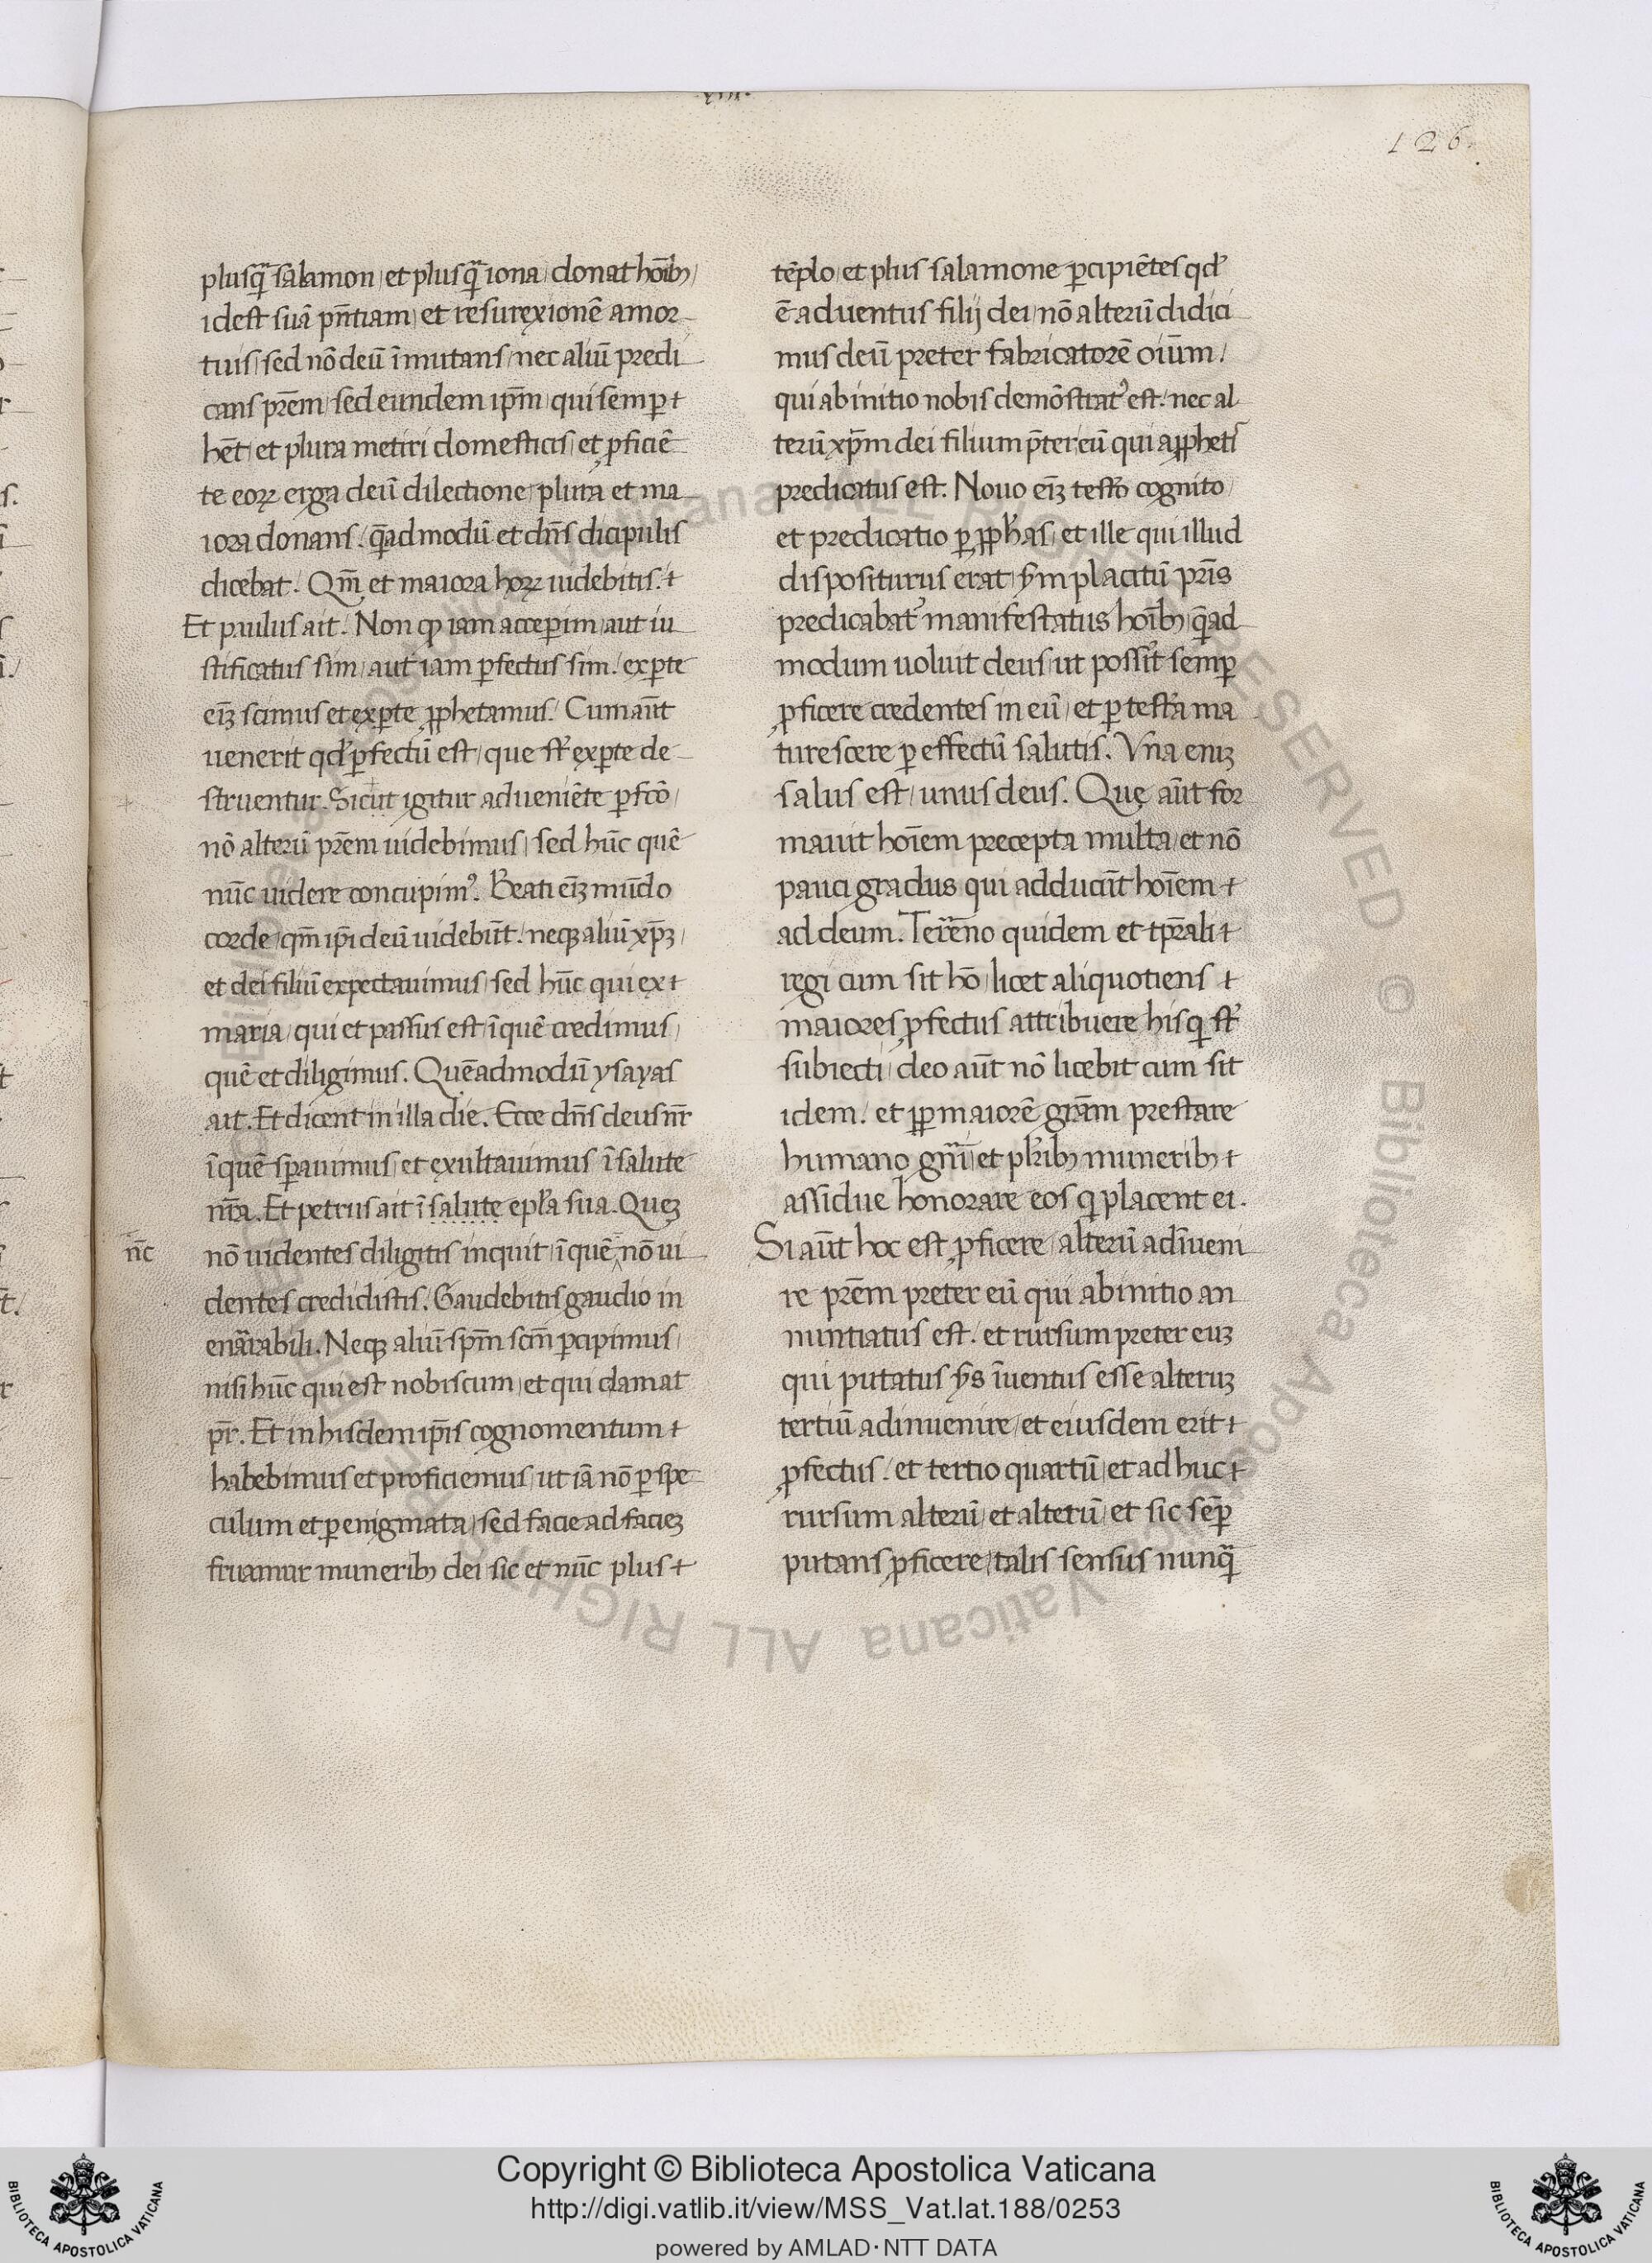 xiii.
126.
plusq̃ salamon/ et plus q̃ iona/ donat hoĩbꝫ/
idest suã pñtiam/ et resurexionẽ amor
tuis/ sed nõ deũ ĩmutans/ nec aliũ predi
cans prẽm/ sed eundem ip̃m/ qui semꝑ
hẽt/ et plura metiri domesticis/ et ꝓficiẽ
te eoꝝ erga deũ dilectione/ plura et ma
iora donans/. q̃ad modũ et dñs dicipulis
dicebat/. Qm̃ et maiora hoꝝ uidebitis/.
Et paulus ait/. Non ꝙ iam acceperim/ aut iu
stificatus sim/ aut iam ꝑfectus sim/. ex ꝑte
eiꝫ scimus et ex ꝑte ꝓphetamus/. Cum aũt
uenerit qd̛ ꝑfectũ est/ que st̛ ex ꝑte de
struentur. Sicut igitur adueniẽte ꝑfcõ/
nõ alterũ prẽm uidebimus/ sed hũc quẽ
nũc uidere concupimꝰ. Beati eiꝫ mũdo
corde/ qm̃ ip̃i deũ uidebũt/. neqꝫ aliũ xp̃ꝫ/
et dei filiũ expectauimus/ sed hũc qui ex
maria/ qui et passus est/ ĩ quẽ credimus/
quẽ et diligimus. Quẽadmodũ ysayas
ait. Et dicent in illa die. Ecce dñs deus nr̃
ĩ quẽ sꝑauimus/ et exultauimus ĩ salute
nr̃a. Et petrus ait ĩ salute epl̃a sua. Queꝫ
nõ uidentes diligitis inquit/ ĩ quẽ nõ ui
nc̃
dentes credidistis/. Gaudebitis gaudio in
enãrabili. Neqꝫ aliũ sp̃m sc̃m ꝑcipimus/
nisi hũc qui est nobiscum/ et qui clamat
pr̃. Et in hisdem ip̃is cognomentum
habebimus et proficiemus/ ut iã nõ ꝑ spe
culum et ꝑ enigmata/ sed facie ad facieꝫ
fruamur muneribꝫ dei sic et nũc plus
tẽplo/ et plus salamone ꝑcipiẽtes qd̛
ẽ aduentus filij dei/ nõ alterũ didici
mus deũ preter fabricatorẽ oiũm/
qui abinitio nobis demõstratꝰ est/. nec al
terũ xp̃m dei filium p̃ter eũ qui a ꝓphetis
predicatus est. Nouo eiꝫ test̃o cognito/
et predicatio ꝑ ꝓph̃as/ et ille qui illud
dispositurus erat/ ẙm placitũ pr̃is
predicabatꝰ manifestatus hoĩbꝫ/ q̃ad
modum uoluit deus/ ut possĩt semꝑ
ꝓficere credentes in eũ/ et ꝑ test̃a ma
turescere ꝑ effectũ salutis. Vna eniꝫ
salus est/ unus deus. Quę aũt for
mauit hoĩem precepta multa/ et nõ
pauci gradus qui adducũt hoĩem
ad deum. Terrẽno quidem et tp̃rali
regi cum sit hõ/ licet aliquotiens
maiores ꝓfectus attribuere his q̃ st̛
subiecti/ deo aũt nõ licebit cum sit
idem/. et ꝑꝑ maiorẽ grãm prestare
humano gñi/ et pl̃ribꝫ muneribꝫ
assidue honorare eos q̃ placent ei.
Si aũt hoc est ꝓficere/ alterũ adĩueni
re prẽm preter eũ qui abinitio an
nuntiatus est/. et rursum preter euꝫ
qui putatus ẙs ĩuentus esse alteruꝫ
tertiũ adinuenire/ et eiusdem erit
ꝓfectus/. et tertio quartũ/ et ad huc
rursum alterũ/ et alterũ/ et sic semꝑ
putans ꝓficere/ talis sensus nunq̃
Copyright © Biblioteca Apostolica Vaticana
http://digi.vatlib.it/view/MSS_Vat.lat.188/0253
powered by AMLAD·NTT DATA
BIBLIOTECA APOSTOLICA VATICANA
BIBLIOTECA APOSTOLICA VATICANA